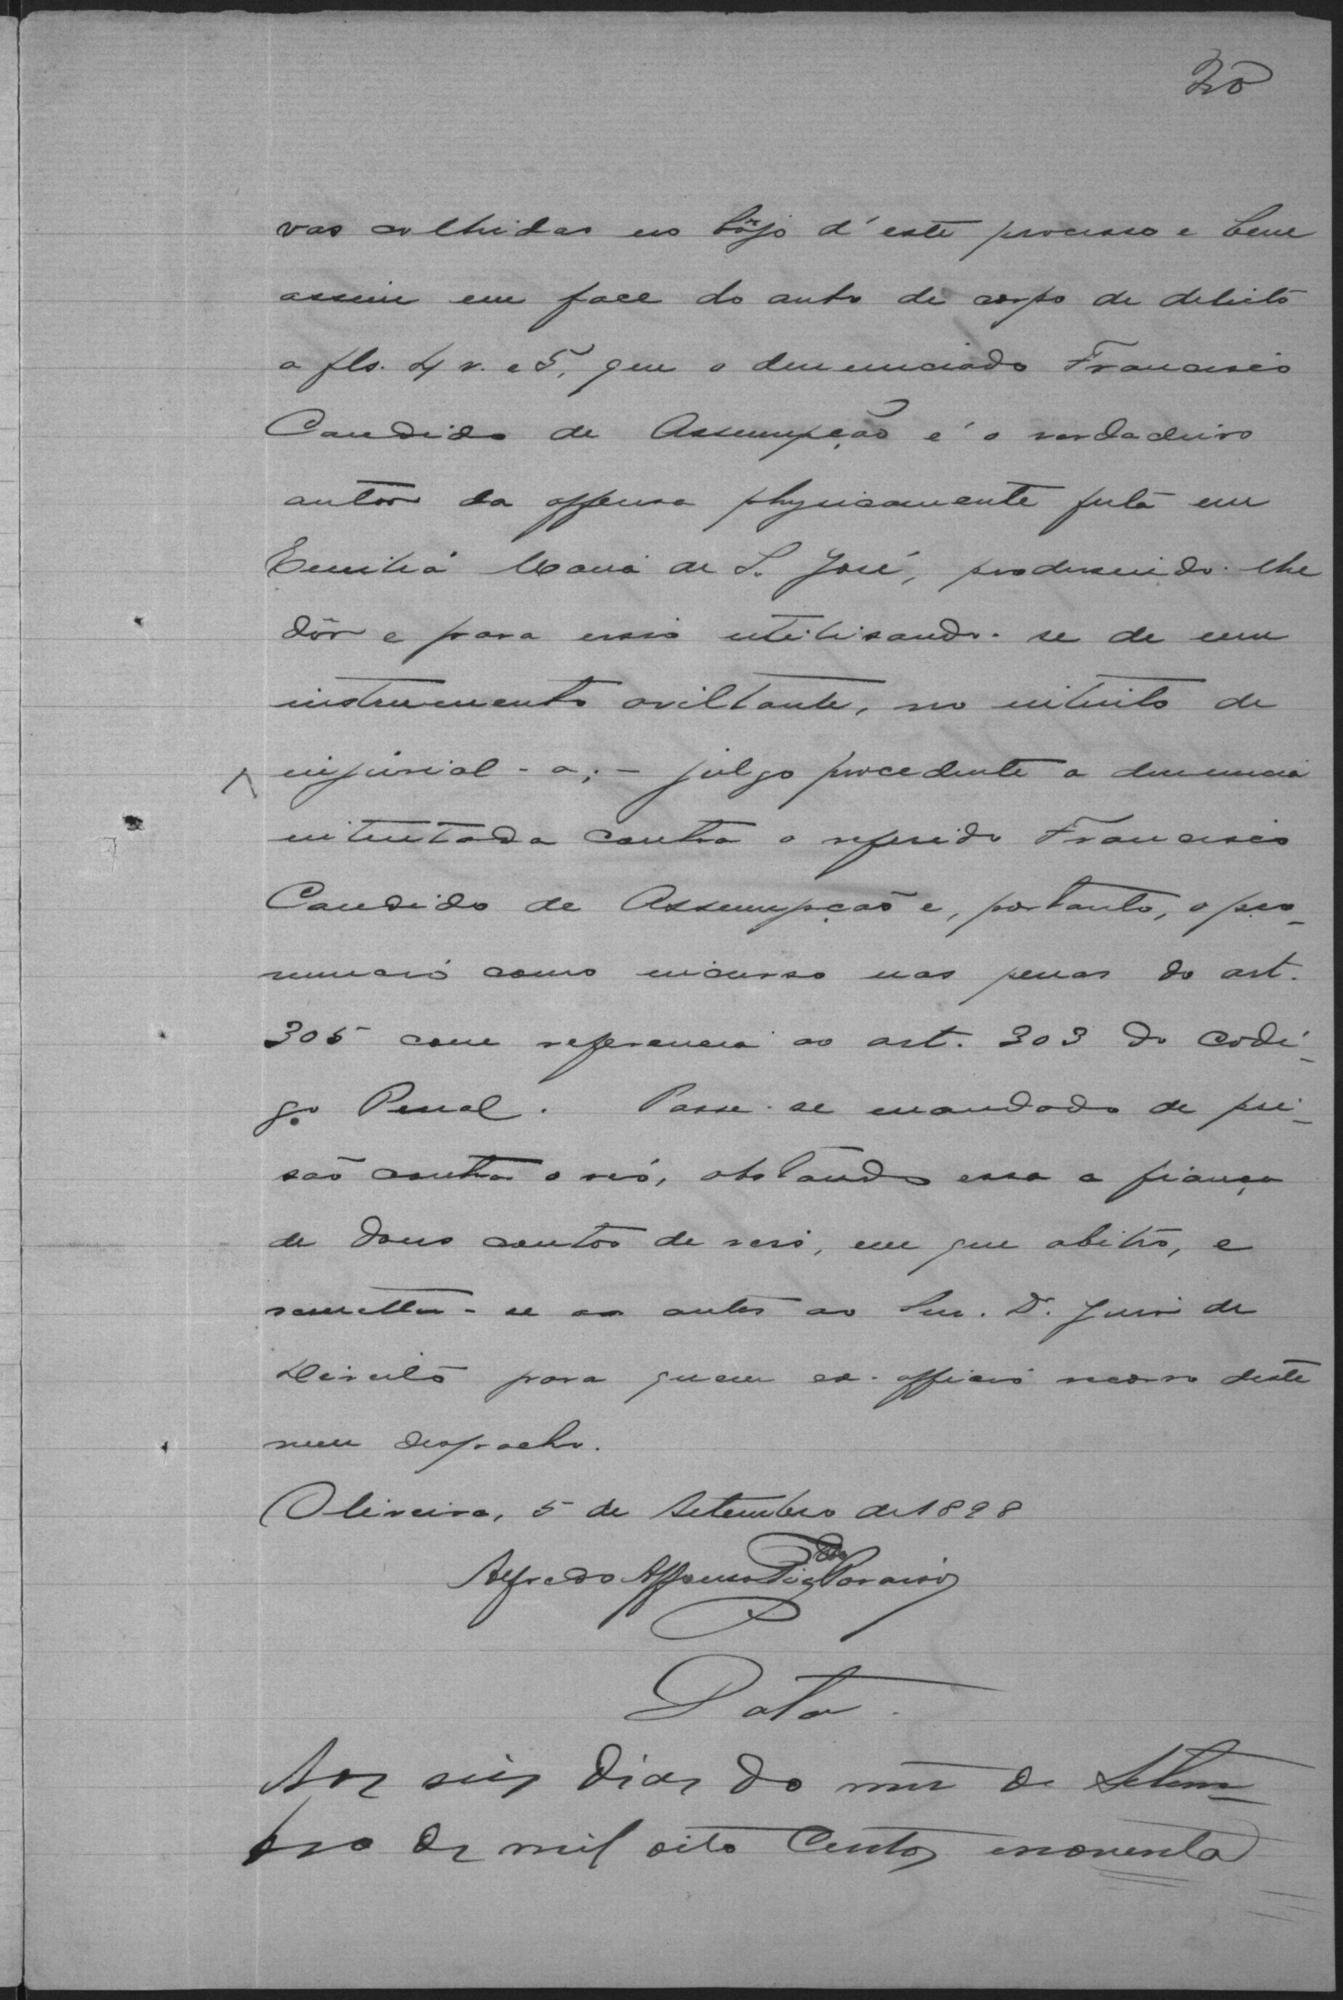 20
vas colhidas no bôjo d'este processo e bem
assim em face do auto de corpo de delicto
a fls. 4 v. e 5, que o denunciado Francisco
Candido de Assumpção é o verdadeiro
autor da offensa physicamente feita em
Emilia Maria de S. José, produsindo-lhe
dôr e para isso utilisando-se de um
instrumento aviltante, no intuito de
injurial-a; - julgo procedente a denuncia
intentada contra o referido Francisco
Candido de Assumpção e, portanto, o pro-
nuncio como incurso nas penas do art.
305 com referencia ao art. 303 do Codi-
go Penal. Passe-se mandado de pri-
são contra o réo, obstando essa a fiança
de dous contos de reis, em que arbitro, e
remetta-se os autos ao Snr. Dr. Juiz de
Direito para quem ex-officio recorro deste
meu despacho.
Oliveira, 5 de Setembro de 1898
Alfredo Affonso Paraiso
Data.
Aos seis dias do mez de Setem-
bro de mil oito centos e noventa